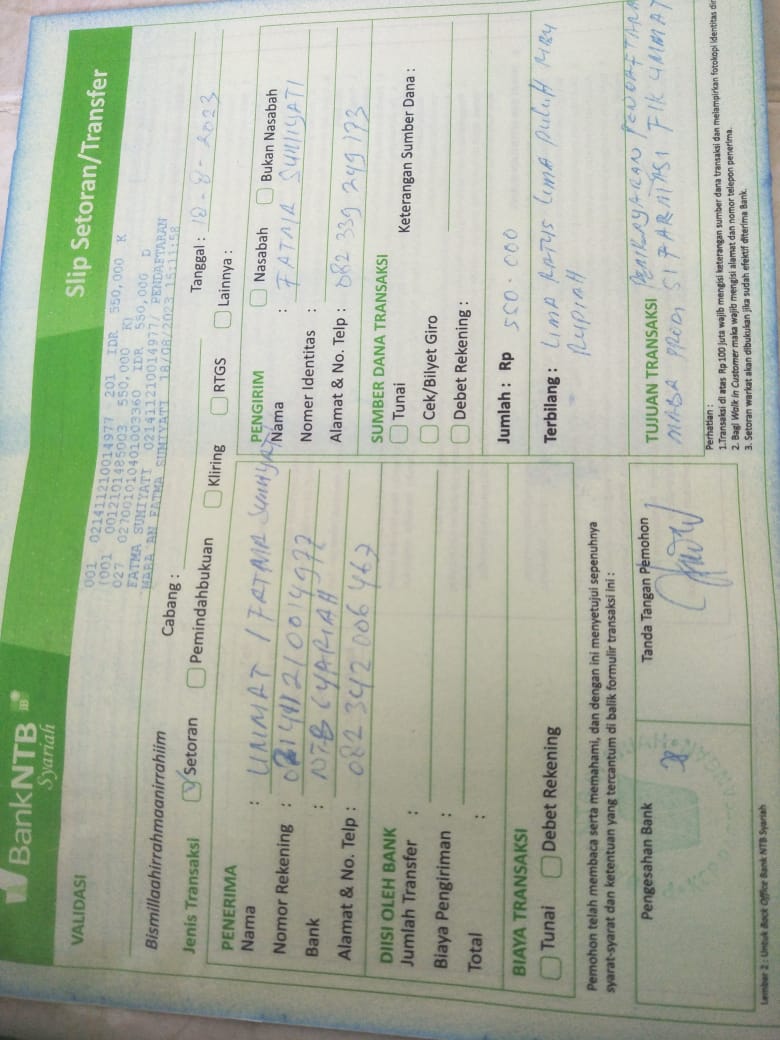 BankNTB
Syariah
Slip Setoran/Transfer
VALIDASI
001 021411210014977 201 IDR 550,000 K
(001 0012101485003 550,000 K)
027 027001010401003360 IDR 550,000 D
FATMA SUMIYATI 021411210014977/ PENDAFTARAN
MABA AN FATMA SUMIYATI 18/08/2023 15:11:58
Bismillaahirrahmaanirrahiim
Cabang :
Tanggal : 18-8-2023
Jenis Transaksi
Setoran
Pemindahbukuan
Kliring
RTGS
Lainnya :
PENERIMA
Nama : UMMAT / FATMA SUMIYATI
Nomor Rekening : 021411210014977
Bank : NTB SYARIAH
Alamat & No. Telp : 082 342 006 467
PENGIRIM
Nasabah
Bukan Nasabah
Nama : FATMA SUMIYATI
Nomer Identitas :
Alamat & No. Telp : 082 339 249 173
DIISI OLEH BANK
Jumlah Transfer :
Biaya Pengiriman :
Total :
SUMBER DANA TRANSAKSI
Tunai
Keterangan Sumber Dana :
Cek/Bilyet Giro
Debet Rekening :
BIAYA TRANSAKSI
Tunai
Debet Rekening
Jumlah : Rp 550.000
Terbilang : LIMA RATUS LIMA PULUH RIBU
RUPIAH
Pemohon telah membaca serta memahami, dan dengan ini menyetujui sepenuhnya
syarat-syarat dan ketentuan yang tercantum di balik formulir transaksi ini :
Pengesahan Bank
Tanda Tangan Pemohon
TUJUAN TRANSAKSI PEMBAYARAN PENDAFTARA
MABA PRODI S1 FARMASI FIK UMMAT
Perhatian :
1.Transaksi di atas Rp 100 juta wajib mengisi keterangan sumber dana transaksi dan melampirkan fotokopi identitas dir
2. Bagi Walk in Customer maka wajib mengisi alamat dan nomor telepon penerima.
3. Setoran warkat akan dibukukan jika sudah efektif diterima Bank.
Lembar 2 : Untuk Back Office Bank NTB Syariah